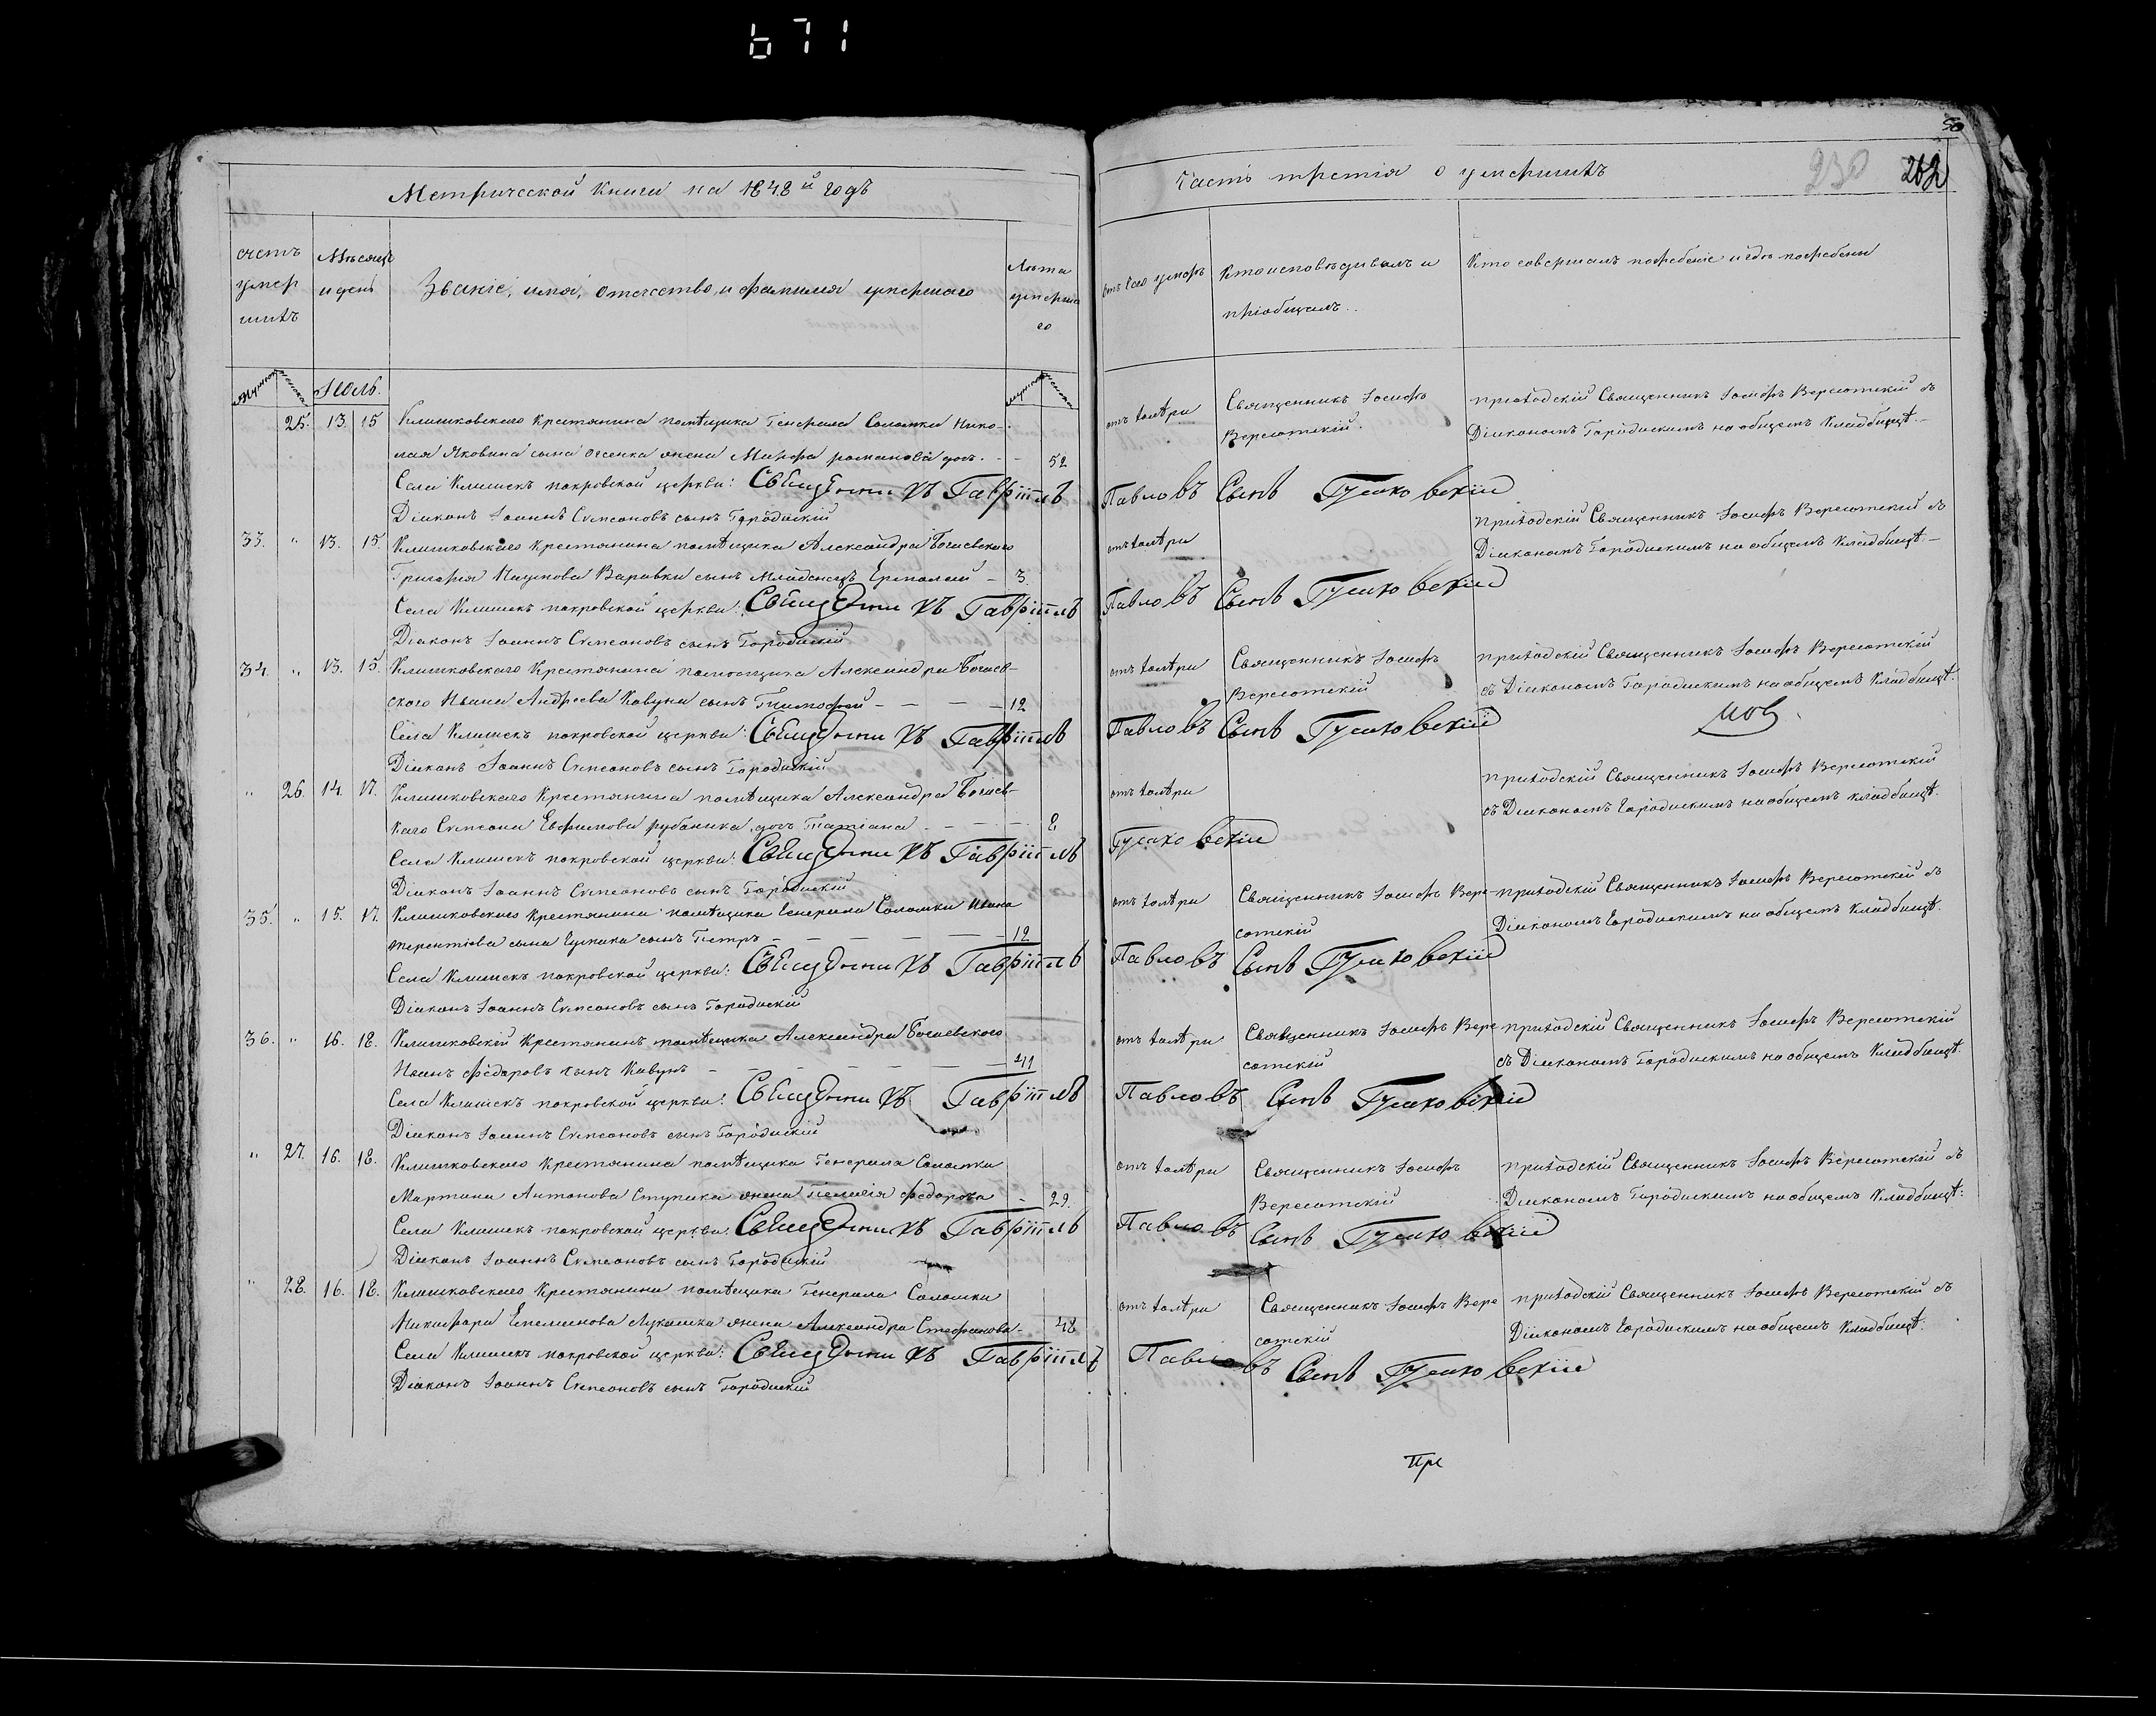 671
50
Метрической книги на 1848й годъ
Часть третія о умершихъ
230 262
счетъ умер шихъ
Мѣсяцъ и день
Званіе, имя, отечество, и фамилія умершаго
Лѣта умерша го
отъ чего умеръ
Кто исповѣдивалъ и пріобщалъ.
Кто совершалъ погребеніе и гдѣ погребены
Іюль.
25. 13. 15 Клишковскаго Крестянина помѣщика Генерала Соломки Нико-
лая Яковина сына жена Марфа романова доч. - - 52
отъ холѣри Священникъ Іосифъ
Вересотскій.
приходскій Священникъ Іосифъ Вересотскій съ
Діякономъ Городискимъ на общемъ Кладбищѣ.-
Села Клишекъ покровской церкви: Гавріилъ Павловъ Сынъ
Діяконъ Іоаннъ Симеоновъ сынъ Городискій
33. " 13. 15. Клишковскаго Крестянина помѣщика Александра Богаевского
Григорія Наумова Варавки сынъ младенецъ Ермолай - 3.
отъ холѣри
приходскій Священникъ Іосифъ Вересотскій съ
Діякономъ Городискимъ на общемъ Кладбищѣ.-
Села Клишекъ покровской церкви: Гавріилъ Павловъ Сынъ
Діяконъ Іоаннъ Симеоновъ сынъ Городискій
34. " 13. 15. Клишковскаго Крестянина помѣщика Александра Богаев-
ского Ивана Андреева Кавуна сынъ Тимофей - - - - 12
отъ холѣри Священникъ Іосифъ
Вересотскій
приходскій Священникъ Іосифъ Вересотскій
съ Діякономъ Городискимъ на общемъ Кладбищѣ.
Села Клишекъ покровской церкви: Гавріилъ Павловъ Сынъ
Діяконъ Іоаннъ Симеоновъ сынъ Городискій
" 26. 14. 17. Клишковскаго Крестянина помѣщика Александра Богаев-
каго Симеона Евфимова рубаника доч Татіана - - - - 8
отъ холѣри
приходскій Священникъ Іосифъ Вересотскій
съ Діякономъ Городискимъ на общемъ кладбищѣ.
Села Клишекъ покровской церкви: Гавріилъ
Діяконъ Іоаннъ Симеоновъ сынъ Городискій
35. " 15. 17. Клишковскаго Крестянина помѣщика Генерала Соломки Ивана
терентіева сына сынъ Петръ - - - - - 12
отъ холѣри Священникъ Іосифъ Вере-
сотскій
приходскій Священникъ Іосифъ Вересотскій съ
Діякономъ Городискимъ на общемъ Кладбищѣ.
Села Клишекъ покровской церкви: Гавріилъ Павловъ Сынъ
Діяконъ Іоаннъ Симеоновъ сынъ Городискій
36. " 16. 18. Клишковскій Крестянинъ помѣщика Александра Богаевского
Иванъ федоровъ сынъ Кавунъ - - - - - -
отъ холѣри Священникъ Іосифъ Вере
сотскій
приходскій Священникъ Іосифъ Вересотскій
съ Діякономъ Городискимъ на общемъ Кладбищѣ.
Села Клишекъ покровской церкви: Гавріилъ Павловъ Сынъ
Діяконъ Іоаннъ Симеоновъ сынъ Городискій
" 27. 16. 18. Клишковскаго Крестянина помѣщика Генерала Соломки
Мартина Антонова Ступака жена Пелагія федорова - 29.
отъ холѣри Священникъ Іосифъ
Вересотскій
приходскій Священникъ Іосифъ Вересотскій съ
Діякономъ Городискимъ на общемъ Кладбищѣ:
Села Клишекъ покровской церкви: Гавріилъ Павловъ Сынъ
Діяконъ Іоаннъ Симеоновъ сынъ Городискій
" 28. 16. 18. Клишковскаго Крестянина помѣщика Генерала Соломки
Никифора Емелианова Лукашка жена Александра Стефанова - 48
отъ холѣри Священникъ Іосифъ Вере
сотскій
приходскій Священникъ Іосифъ Вересотскій съ
Діякономъ Городискимъ на общемъ Кладбищѣ.
Села Клишекъ покровской церкви: Гавріилъ Павловъ Сынъ
Діяконъ Іоаннъ Симеоновъ сынъ Городискій
При